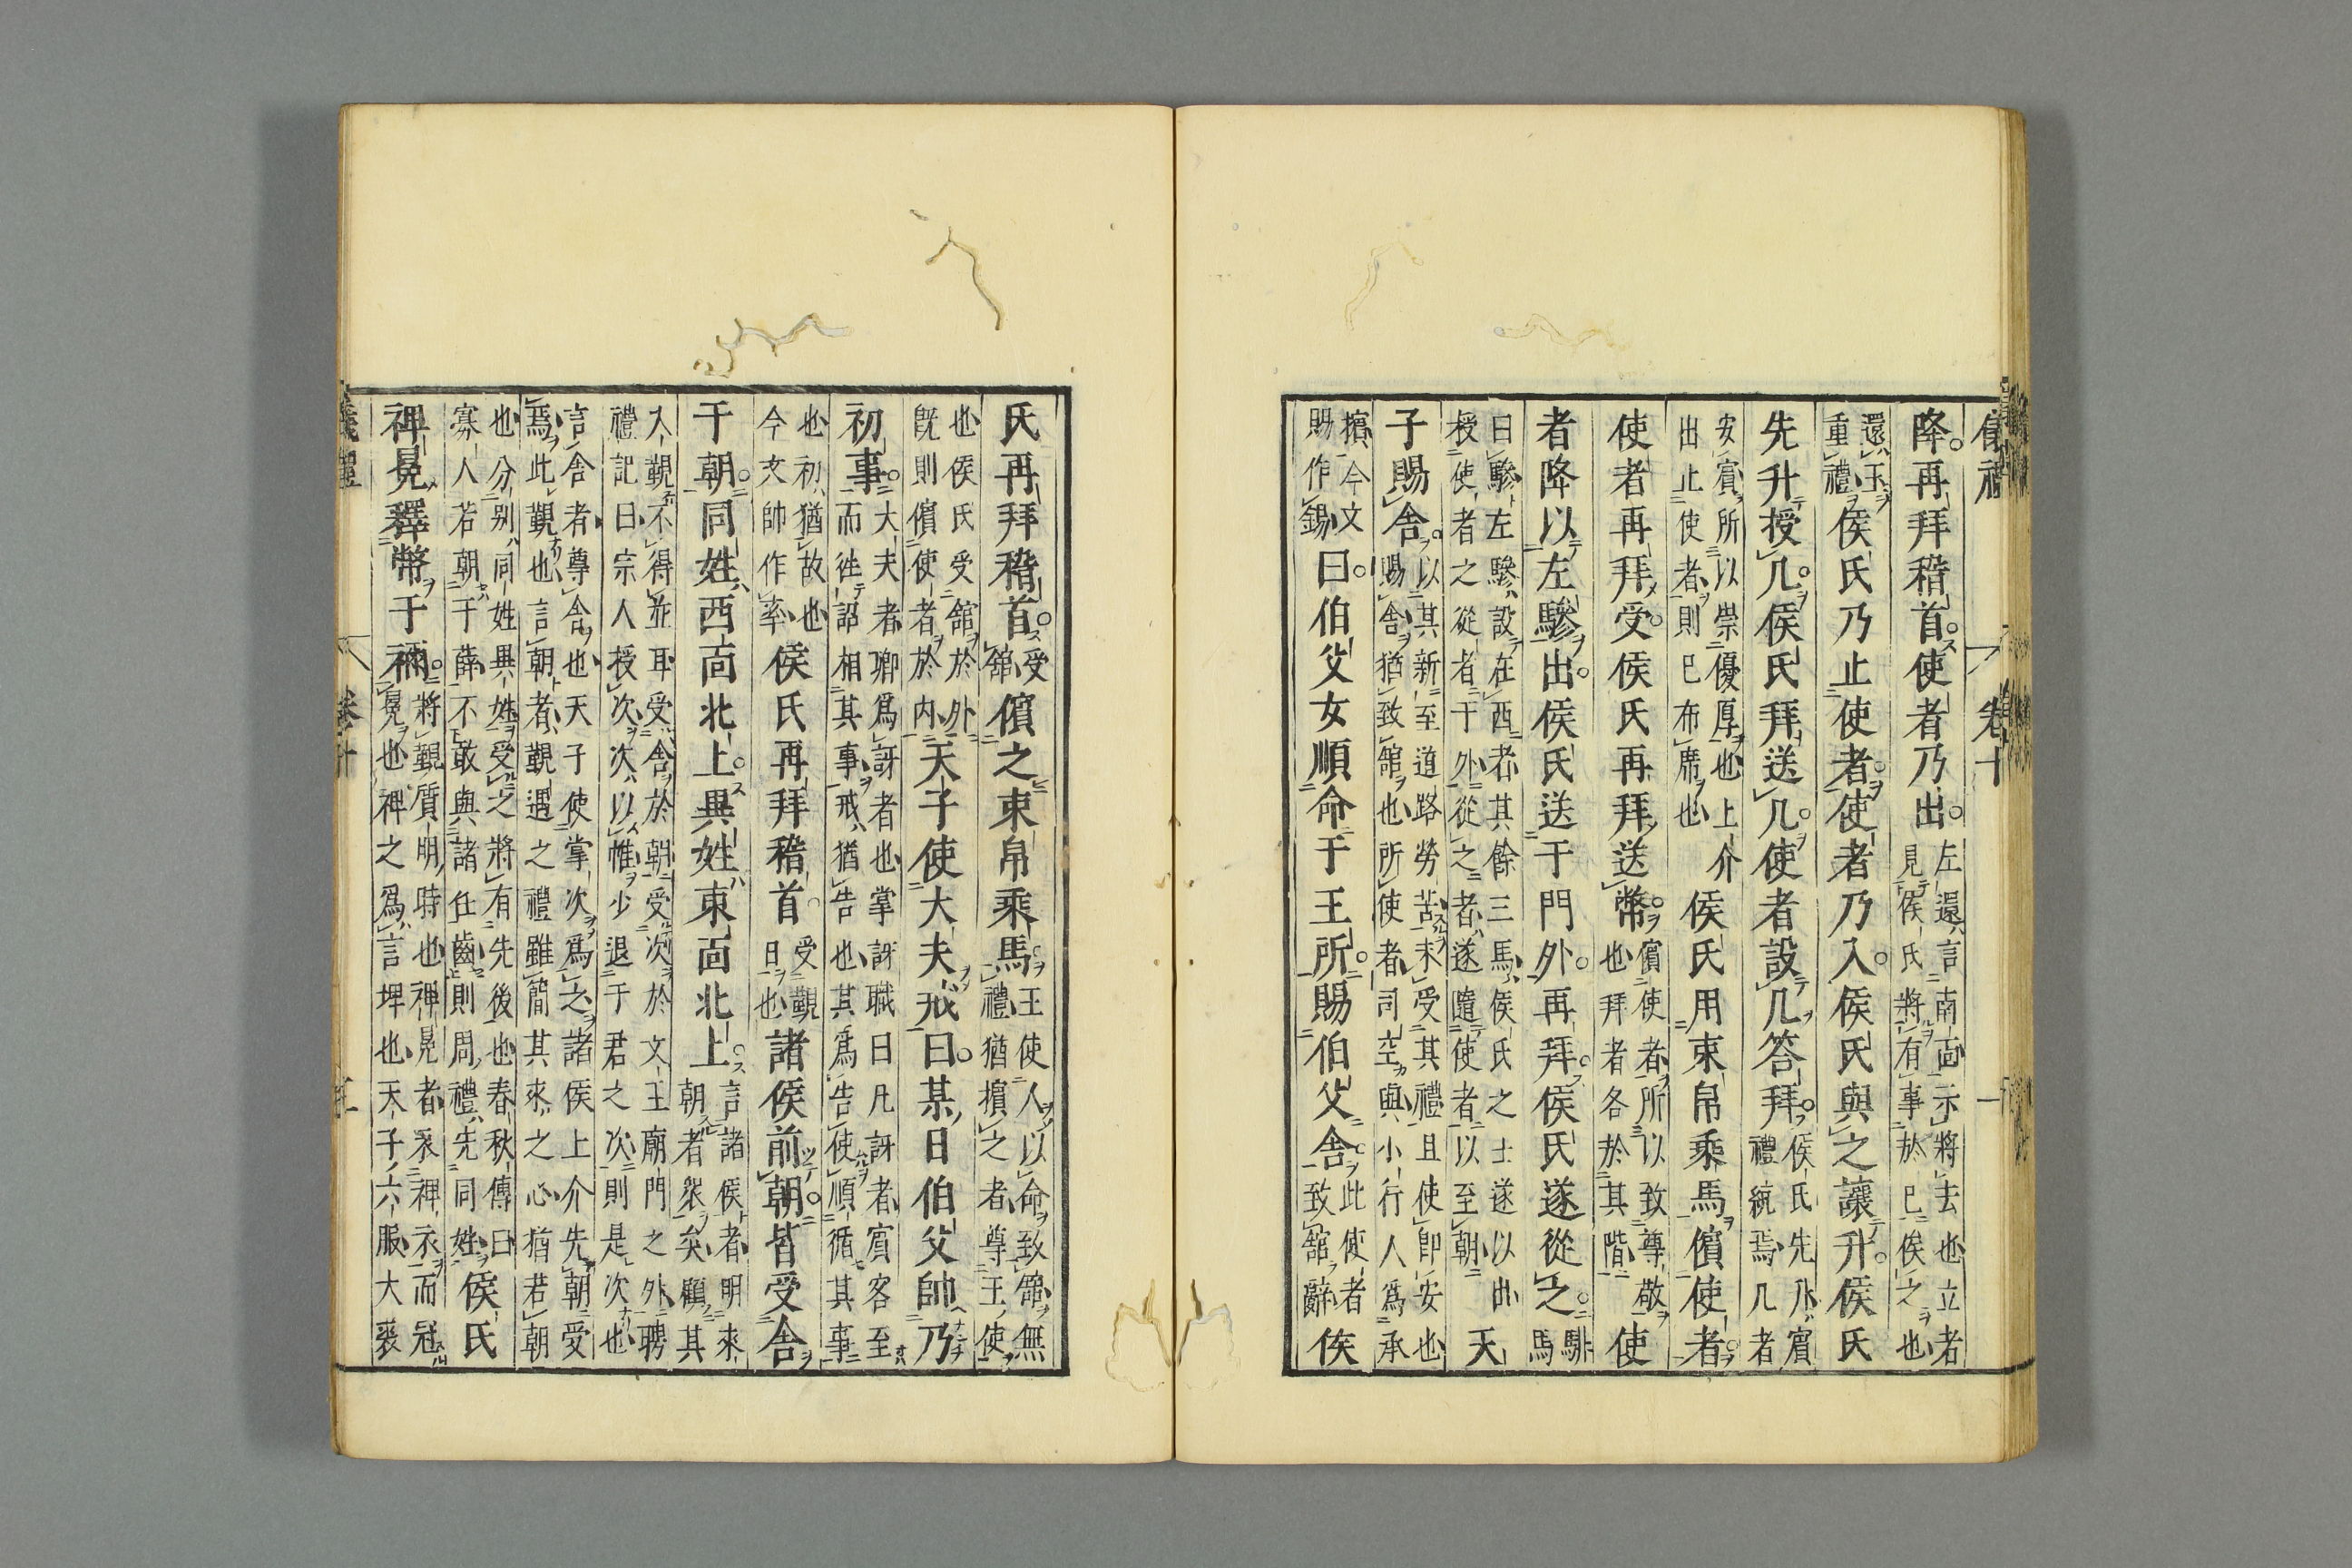 儀禮 卷十 一
降再拜稽首使者乃出左還言南面示將去也立者見侯氏將有事於已俟之也
還玉重禮侯氏乃止使者使者乃入侯氏與之讓升侯氏
先升授几侯氏拜送几使者設几答拜侯氏先升賓禮統焉几者
安賓所以崇優厚也上介出止使者則已布席也侯氏用束帛乘馬儐使者
使者再拜受侯氏再拜送幣儐使者所以致尊敬也拜者各於其階使
者降以左驂出侯氏送于門外再拜侯氏遂從之騑馬
曰驂左驂設在西者其餘三馬侯氏之士遂以出授使者之從者于外從之者遂隨使者以至朝天
子賜舍以其新至道路勞苦未受其禮且使即安也賜舍猶致館也所使者司空與小行人爲承
擯今文賜作錫曰伯父女順命于王所賜伯父舍此使者致館辭侯
氏再拜稽首受館儐之束帛乘馬王使人以命致館無禮猶擯之者尊王使
也侯氏受舘於外既則儐使者於内天子使大夫戒曰某日伯父帥乃
初事大夫者卿爲訝者也掌訝職曰凡訝者賓客至而徃詔相其事戒猶告也其爲告使順循其事
也初猶故也今文帥作率侯氏再拜稽首受覲日也諸侯前朝皆受舍
于朝同姓西面北上異姓東面北上言諸侯者明來朝者衆矣顧其
入覲不得並耳受舍於朝受次於文王廟門之外聘禮記曰宗人授次次以帷少退于君之次則是次也
言舍者尊舍也天子使掌次爲之諸侯上介先朝受焉此覲也言朝者覲遇之禮雖簡其來之心猶若朝
也分别同姓異姓受之將有先後也春秋傳曰寡人若朝于薛不敢與諸任齒則周禮先同姓侯氏
裨冕釋幣于禰將覲質明時也裨冕者衣裨衣而冠冕也裨之爲言埤也天子六服大裘
儀禮 卷十